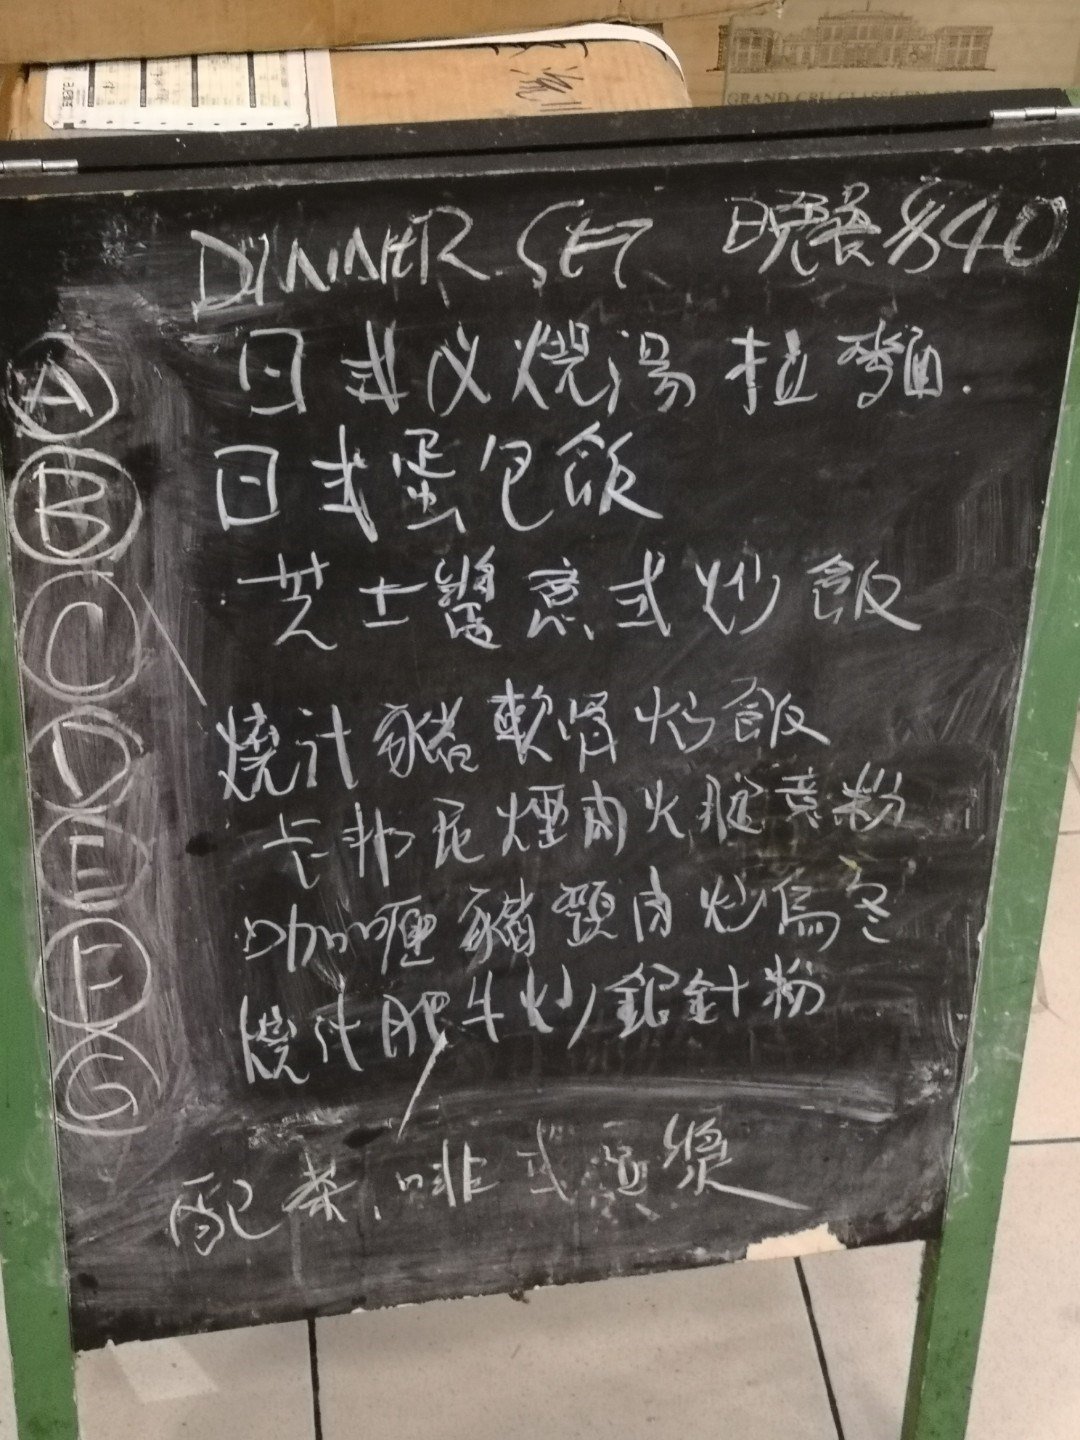 GRAND CRU CLASSÉ EN
DINNER SET 晚餐 $40
A 日式义燒湯拉麵.
B 日式蛋包飯
C 芝士醬意式炒飯
D 燒汁豬軟骨炒飯
E 卡邦尼煙肉火腿意粉
F 咖喱豬頸肉炒烏冬
G 燒汁肥牛炒銀針粉
配茶、啡或